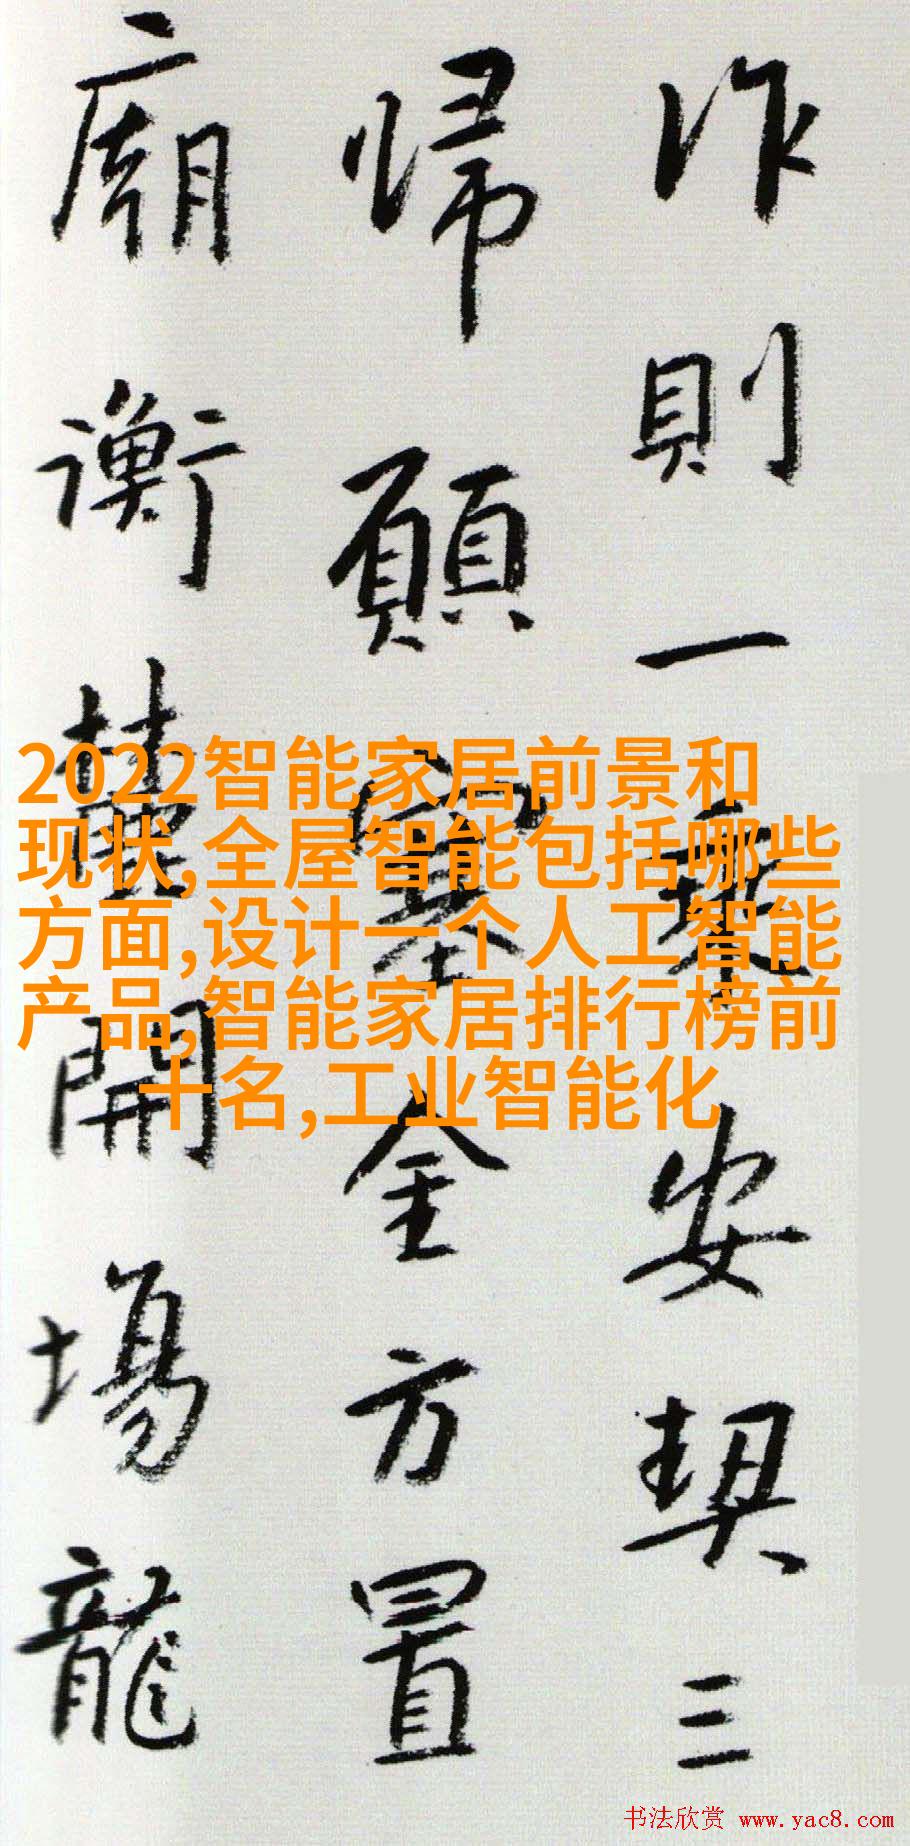 作則一乘安契三
歸願塞全方置
廟衡麓開場龍
2022智能家居前景和
现状,全屋智能包括哪些
方面,设计一个人工智能
产品,智能家居排行榜前
十名,工业智能化
书法欣赏 www.yac8.com